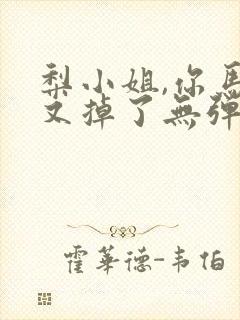 梨小姐,你馬
又掉了無彈
霍華德-韦伯